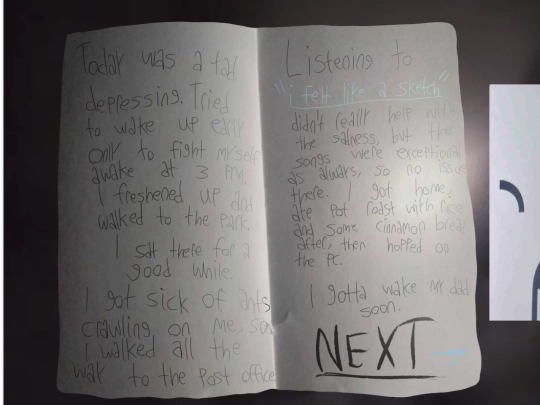 Today was a tad
depressing. Tried
to wake up early
only to fight myself
awake at 3 PM.
I freshened up and
walked to the park.
I sat there for a
good while.
I got sick of ants
crawling on me, so
I walked all the
way to the post office
Listening to
"i felt like a sketch"
didn't really help with
the sadness, but the
songs were exceptional
as always, so no issue
there. I got home,
ate pot roast with rice
and some cinnamon bread
after, then hopped on
the PC.
I gotta wake my dad
soon.
NEXT